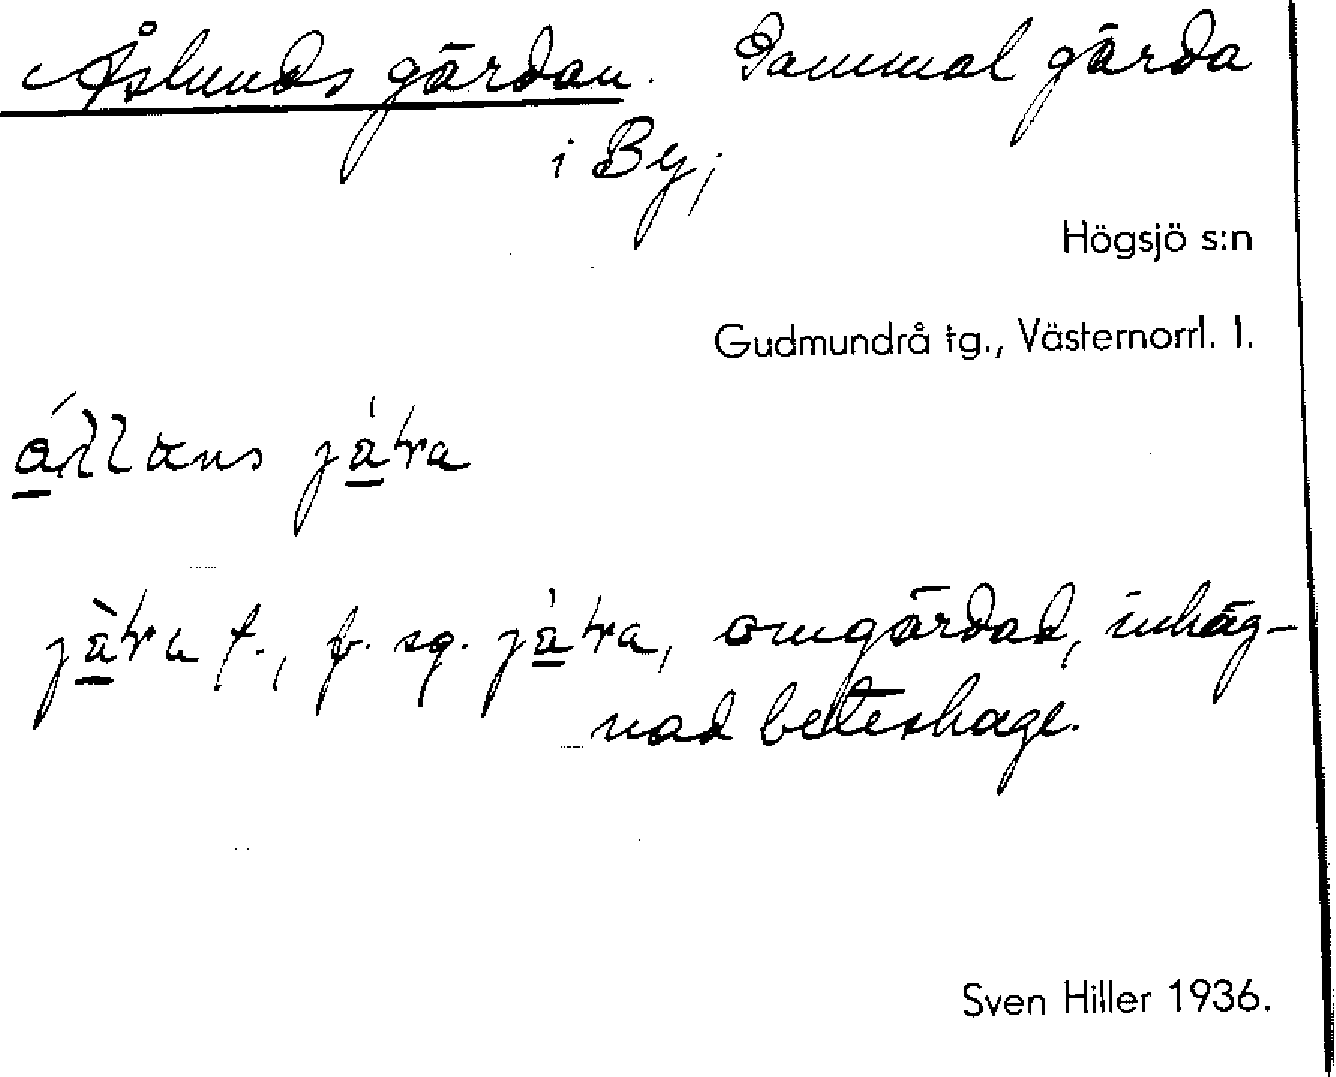 Åslunds gärdan. Gammal gärda
i By;
Högsjö s:n
Gudmundrå tg., Västernorrl. l.
f., b. sg. omgärdad, inhäg-
nad beteshage.
Sven Hiller 1936.